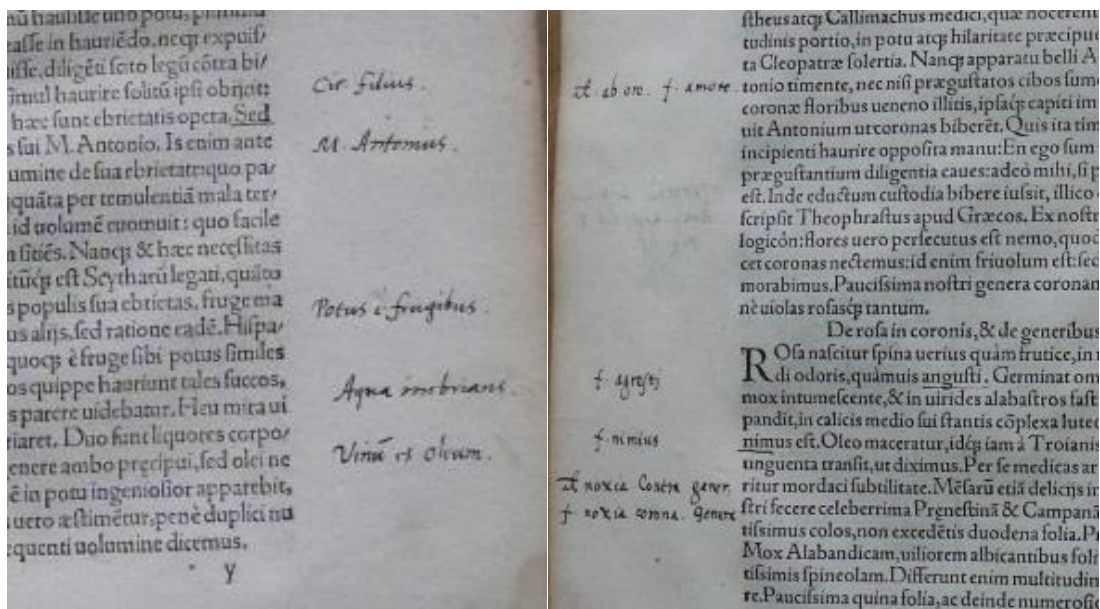 nū haustibe uno potu, plurimū
easse in hauriēdo, neqꝫ expuis/
uisse, diligēti scito legū cōtra bi/
simul haurire solitū ipsi obijcit:
hæc sunt ebrietatis opera. Sed
s sui M. Antonio. Is enim ante
umine de sua ebrietate: quo pa/
quāta per temulentiā mala ter/
id uolumē euomuit: quo facile
n sitiēs. Nanqꝫ & hæc necessitas
itūqꝫ est Scytharū legati, quāto
s populis sua ebrietas, fruge ma
us alijs, sed ratione eadē. Hispa/
quoqꝫ è fruge sibi potus similes
os quippe hauriunt tales succos,
s parere uidebatur. Heu mira ui
riaret. Duo sunt liquores corpo/
enere ambo præcipui, sed olei ne
ē in potu ingeniosior apparebit,
uero æstimētur, penè duplici nu
equenti uolumine dicemus.
y
Cic. filius.
M. Antonius.
Potus è frugibus.
Aqua inebrians.
Vinū et oleum.
al ab ore. f. amore.
f. agresti
f. nimius
al noxia Contra gener.
f noxia corona. genere
stheus atqꝫ Callimachus medici, quæ nocerent
tudinis portio, in potu atqꝫ hilaritate præcipue
ta Cleopatræ solertia. Nanqꝫ apparatu belli A
tonio timente, nec nisi prægustatos cibos sume
coronæ floribus ueneno illitis, ipsaqꝫ capiti im
uit Antonium ut coronas biberēt. Quis ita tim
incipienti haurire opposita manu: En ego sum
prægustantium diligentia caues: adeò mihi, si p
est. Inde eductum custodia bibere iussit, illico
scripsit Theophrastus apud Græcos. Ex nostr
logicón: flores uero persecutus est nemo, quod
cet coronas nectemus: id enim friuolum est: sed
morabimus. Paucissima nostri genera coronam
nè uiolas rosasqꝫ tantum.
De rosa in coronis, & de generibus
ROsa nascitur spina uerius quàm frutice, in r
di odoris, quàmuis angusti. Germinat om
mox intumescente, & in uirides alabastros fast
pandit, in calicis medio sui stantis cōplexa luteo
nimus est. Oleo maceratur, idqꝫ iam à Troianis
unguenta transit, ut diximus. Per se medicas ar
ritur mordaci subtilitate. Mēsarū etiā delicijs in
stri fecere celeberrima Prenestinā & Campanā
tissimus colos, non excedētis duodena folia. Pr
Mox Alabandicam, uiliorem albicantibus foli
tissimis spineolam. Differunt enim multitudin
re. Paucissima quina folia, ac deinde numerosi